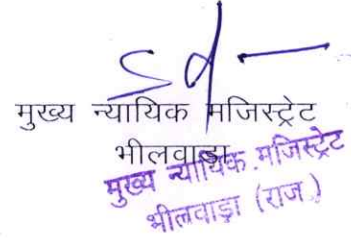 Sd-
मुख्य न्यायिक मजिस्ट्रेट
भीलवाड़ा
मुख्य न्यायिक मजिस्ट्रेट
भीलवाड़ा (राज.)